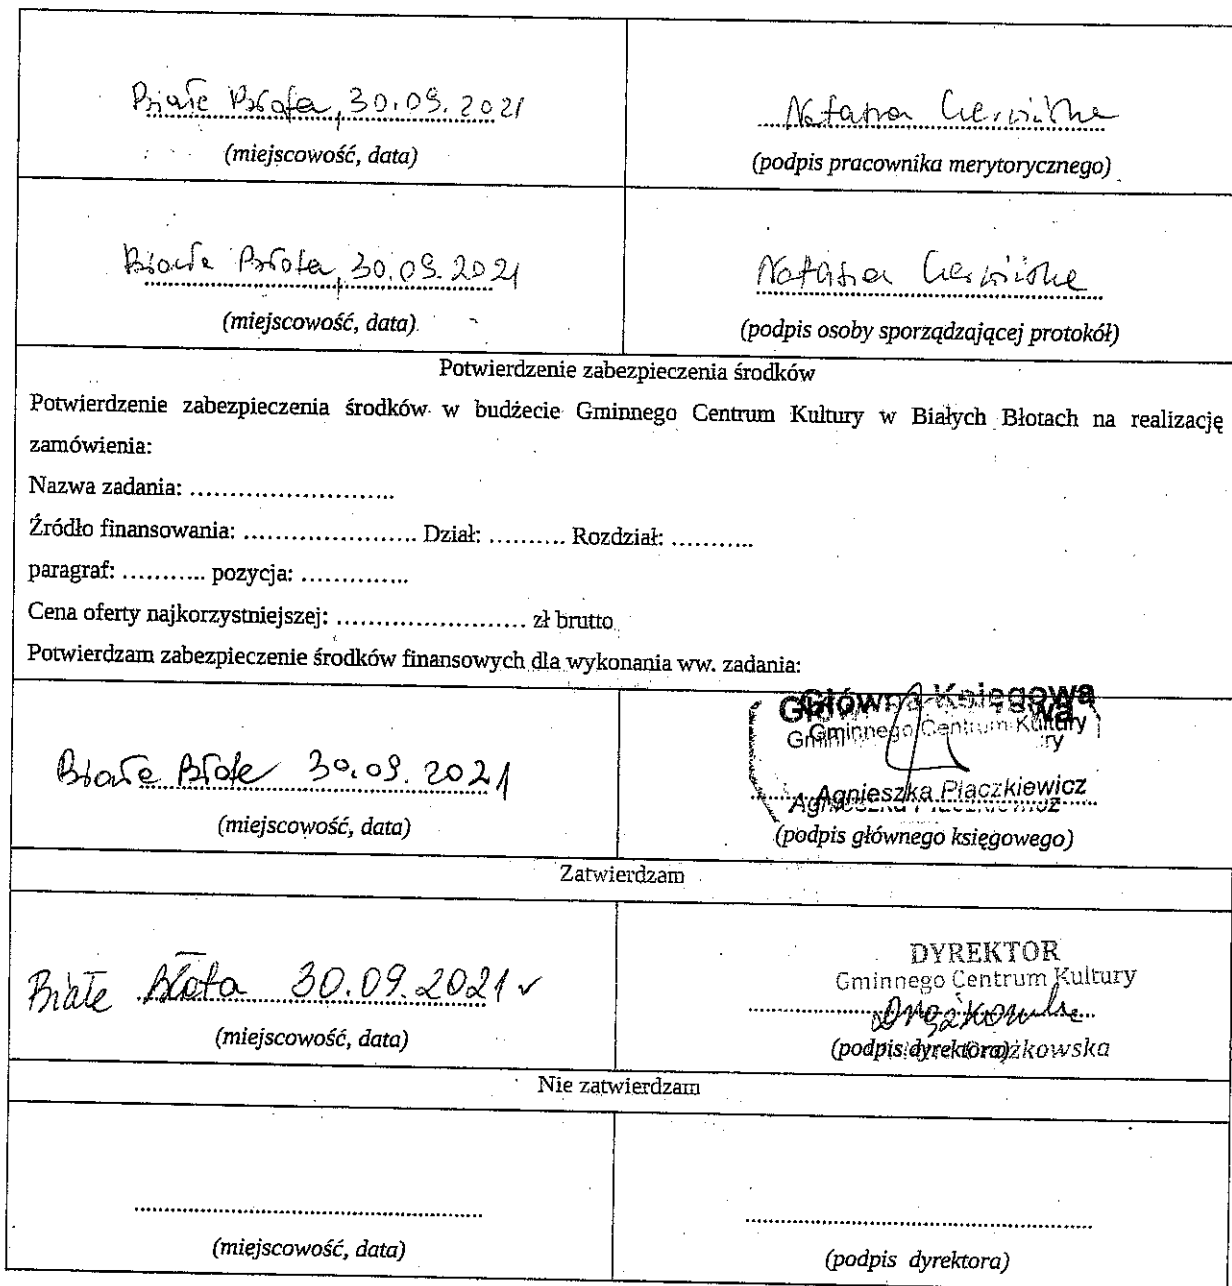 Białe Błota, 30.09.2021
(miejscowość, data)
Natalia
(podpis pracownika merytorycznego)
Białe Błota, 30.09.2021
(miejscowość, data)
Natalia
(podpis osoby sporządzającej protokół)
Potwierdzenie zabezpieczenia środków
Potwierdzenie zabezpieczenia środków w budżecie Gminnego Centrum Kultury w Białych Błotach na realizację
zamówienia:
Nazwa zadania: ..........................
Źródło finansowania: ...................... Dział: .......... Rozdział: ...........
paragraf: ........... pozycja: ..............
Cena oferty najkorzystniejszej: ........................ zł brutto
Potwierdzam zabezpieczenie środków finansowych dla wykonania ww. zadania:
Białe Błota 30.09.2021
(miejscowość, data)
Główna Księgowa
Gminnego Centrum Kultury
Agnieszka Płaczkiewicz
(podpis głównego księgowego)
Zatwierdzam
Białe Błota 30.09.2021
(miejscowość, data)
DYREKTOR
Gminnego Centrum Kultury
(podpis dyrektora)
Nie zatwierdzam
(miejscowość, data)
(podpis dyrektora)